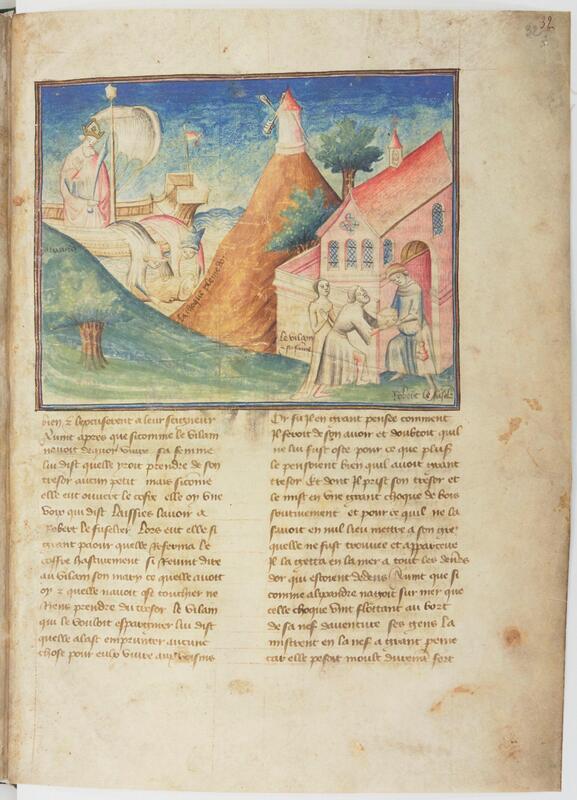 32
la choque de mer
le vilain
z sa feme
robert le fuselier
bien z lexcuserent a leur seigneur
Avint apres que si comme le vilain
navoit de quoy vivre sa femme
luy dist quelle yroit prendre de son
tresor aucun petit mais si come
elle eut ouvert le cofre elle oy une
voix qui dist Laissies lavoir a
Robert le fuselier Lors eut elle si
grant paour quelle referma le
coffre hastivement si revint dire
au vilain son mary ce quelle avoit
oy z quelle navoit ose touchier ne
riens prendre du tresor le vilain
qui le vouloit espargnier luy dist
quelle alast emprunter aucune
chose pour eulx vivre aux voisins
Or fu il en grant pensee comment
Il feroit de son avoir et doubtoit quil
ne luy fust oste pour ce que plusrs
le pensoient bien quil avoit grant
tresor Et dont Il prist son tresor et
le mist en une grant choque de bois
soutivement et pour ce quil ne la
savoit en nul lieu mettre a son gre
quelle ne fust trouvee et apparceue
Il la getta en la mer a tout les deniers
dor qui estoient dedens Avint que si
comme alixandre nagoit sur mer que
celle choque vint flotant au bort
de sa nef daventure ses gens la
mistrent en la nef a grant peine
car elle pesoit moult durement fort